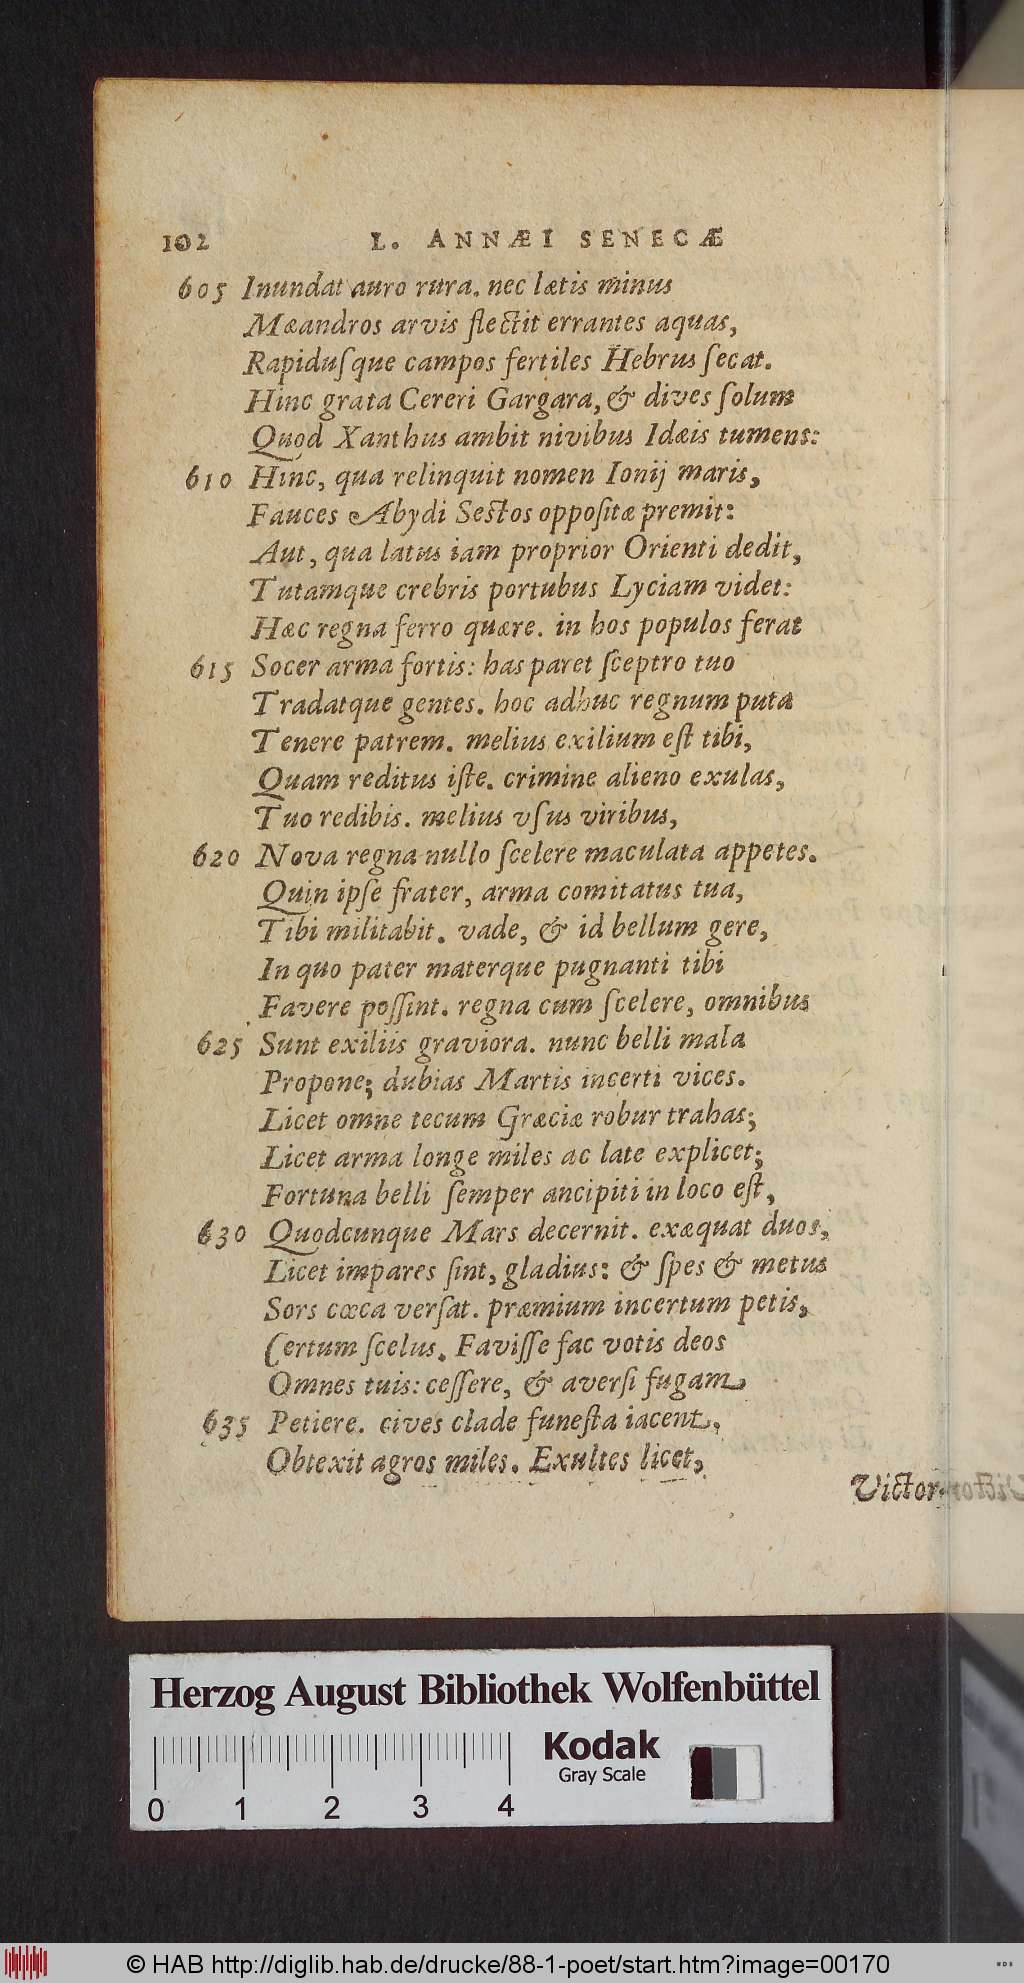 102 L. ANNÆI SENECÆ
605 Inundat auro rura. nec lætis minus
Mæandros arvis flectit errantes aquas,
Rapidusque campos fertiles Hebrus secat.
Hinc grata Cereri Gargara, & dives solum
Quod Xanthus ambit nivibus Idæis tumens:
610 Hinc, qua relinquit nomen Ionij maris,
Fauces Abydi Sestos oppositæ premit:
Aut, qua latus iam proprior Orienti dedit,
Tutamque crebris portubus Lyciam videt:
Hæc regna ferro quære. in hos populos ferat
615 Socer arma fortis: has paret sceptro tuo
Tradatque gentes. hoc adhuc regnum puta
Tenere patrem. melius exilium est tibi,
Quam reditus iste. crimine alieno exulas,
Tuo redibis. melius vsus viribus,
620 Nova regna nullo scelere maculata appetes.
Quin ipse frater, arma comitatus tua,
Tibi militabit. vade, & id bellum gere,
In quo pater materque pugnanti tibi
Favere possint. regna cum scelere, omnibus
625 Sunt exiliis graviora. nunc belli mala
Propone; dubias Martis incerti vices.
Licet omne tecum Græciæ robur trahas;
Licet arma longe miles ac late explicet;
Fortuna belli semper ancipiti in loco est,
630 Quodcunque Mars decernit. exæquat duos,
Licet impares sint, gladius: & spes & metus
Sors cæca versat. præmium incertum petis,
Certum scelus. Favisse fac votis deos
Omnes tuis: cessere, & aversi fugam
635 Petiere. cives clade funesta iacent,
Obtexit agros miles. Exultes licet,
Victor
Herzog August Bibliothek Wolfenbüttel
Kodak
Gray Scale
0 1 2 3 4
© HAB http://diglib.hab.de/drucke/88-1-poet/start.htm?image=00170